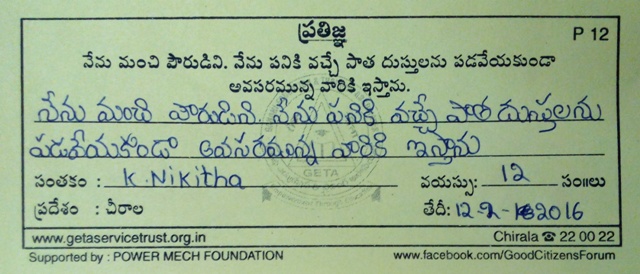 ప్రతిజ్ఞ P 12
నేను మంచి పౌరుడిని. నేను పనికి వచ్చే పాత దుస్తులను పడవేయకుండా
అవసరమున్న వారికి ఇస్తాను.
నేను మంచి పౌరుడిని. నేను పనికి వచ్చే పాత దుస్తులను
పడవేయకుండా అవసరమున్న వారికి ఇస్తాను
సంతకం : K. Nikitha వయస్సు: 12 సం॥లు
ప్రదేశం : చీరాల తేదీ: 12-2-2016
www.getaservicetrust.org.in Chirala ☎ 22 00 22
Supported by : POWER MECH FOUNDATION www.facebook.com/GoodCitizensForum
GETA